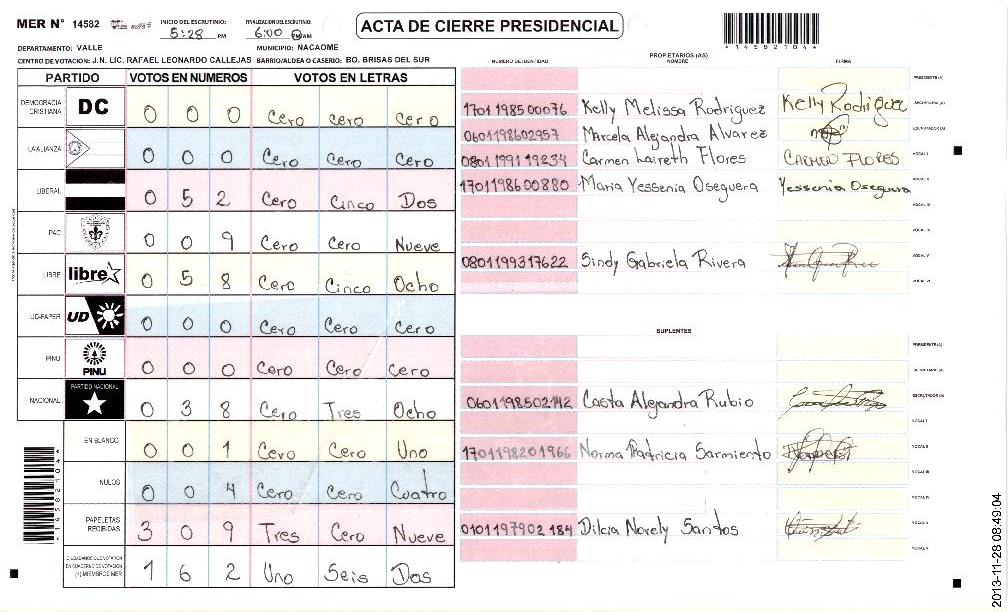 MER N° 14582
INICIO DEL ESCRUTINIO: 5:28 PM
FINALIZACION DEL ESCRUTINIO: 6:00 PM/AM
ACTA DE CIERRE PRESIDENCIAL
*14582104*
DEPARTAMENTO: VALLE
MUNICIPIO: NACAOME
CENTRO DE VOTACION: J.N. LIC. RAFAEL LEONARDO CALLEJAS BARRIO/ALDEA O CASERIO: BO. BRISAS DEL SUR
PARTIDO VOTOS EN NUMEROS VOTOS EN LETRAS
DEMOCRACIA CRISTIANA DC 0 0 0 Cero Cero Cero
LA ALIANZA 0 0 0 Cero Cero Cero
LIBERAL 0 5 2 Cero Cinco Dos
PAC 0 0 9 Cero Cero Nueve
LIBRE libre 0 5 8 Cero Cinco Ocho
UD-FAPER UD 0 0 0 Cero Cero Cero
PINU PINU 0 0 0 Cero Cero Cero
NACIONAL PARTIDO NACIONAL 0 3 8 Cero Tres Ocho
EN BLANCO 0 0 1 Cero Cero Uno
NULOS 0 0 4 Cero Cero Cuatro
PAPELETAS RECIBIDAS 3 0 9 Tres Cero Nueve
CIUDADANOS QUE VOTARON EN CUADERNO DE VOTACION (+) MIEMBROS MER 1 6 2 Uno Seis Dos
*14582104*
PROPIETARIOS (AS)
NUMERO DE IDENTIDAD NOMBRE FIRMA
PRESIDENTE(A)
1701198500076 Kelly Melissa Rodriguez Kelly Rodriguez SECRETARIO(A)
0601198602957 Marcela Alejandra Alvarez ESCRUTADOR(A)
0801199119234 Carmen Laireth Flores CARMEN FLORES VOCAL I
1701198600880 Maria Yessenia Oseguera Yessenia Oseguera VOCAL II
VOCAL III
VOCAL IV
0801199317622 Sindy Gabriela Rivera VOCAL V
VOCAL VI
SUPLENTES
PRESIDENTE(A)
SECRETARIO(A)
0601198502142 Casta Alejandra Rubio ESCRUTADOR(A)
VOCAL I
1701198201966 Norma Patricia Sarmiento VOCAL II
VOCAL III
VOCAL IV
0101197902184 Dilcia Norely Santos VOCAL V
VOCAL VI
2013-11-28 08:49:04